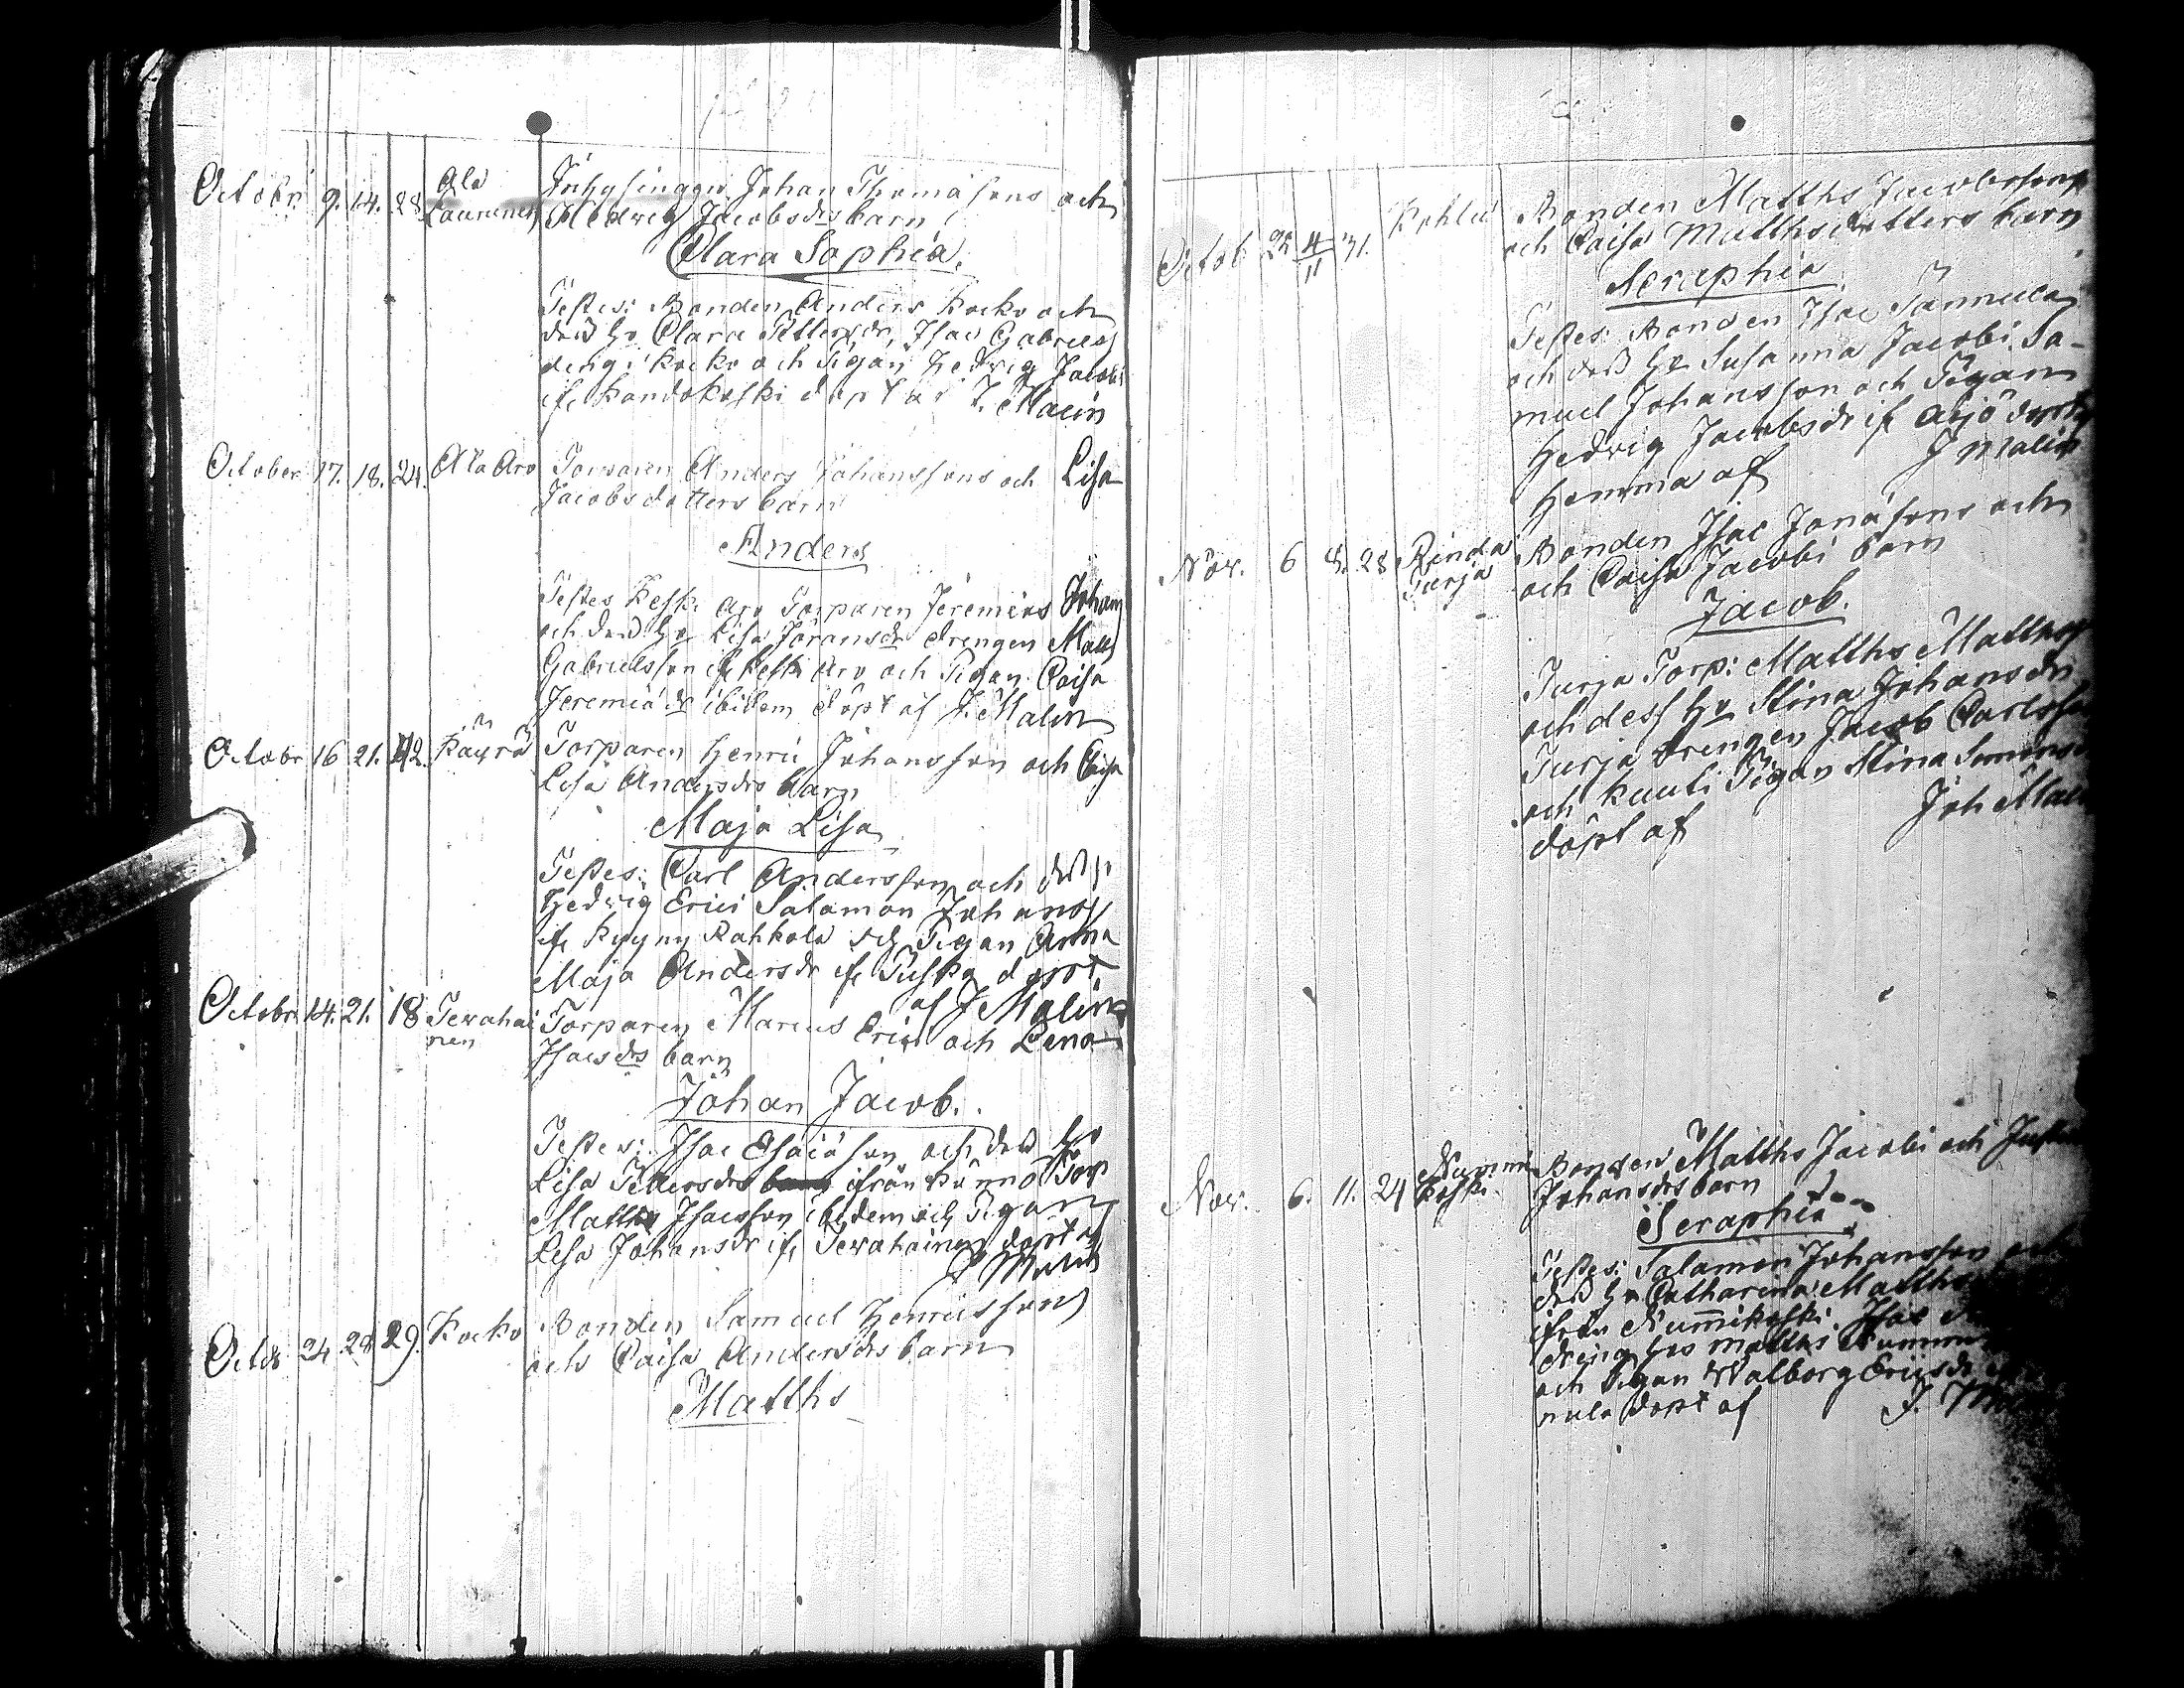 Octobr 9. 14. 28 Ala Inhysingen Johan Thomasons och
Laurinen Hedvig Jacobsdrs barn
Clara Sophia.
Testes: Bonden Anders Kocko och
dess Hu Clara Pettersdr, Isac Gabriels
dräng i Kocko och Pigan Hedvig Jacobi
if.
döpt af J. Malin
October 17. 18. 24. Ala Aro Torparen Anders Johanssons och Lisa
Jacobsdotters barn
Anders
Testes Keski Aro Torparen Jeremias Johans
och dess Hu Lisa Jöransdr drengen Matts
Gabrielsson if Keski Aro och Pigan Caisa
Jeremiædr ibidem döpt af J. Malin
Octobr 16 21. 42. Käyrä Torparen Henric Johansson och Caisa
Lisa Andersdrs barn
Maja Lisa
Testes: Carl Andersson och dess H
Hedvig Erici Salomon Johans
if Kyyny Rahkola och Pigan Anna
Maja Andersdr if Puska döpt
af J Malin
Octobr. 14. 21. 18 Tervahai Torparen Marcus Erici och Lena
nen Isacsdrs barn
Johan Jacob.
Testes: Isac Esaiæson och dess Hu
Lisa Pettersdr ifrån Känno Torp
Matths Isacsson ibidem och Pigan
Lisa Johansdr if Tervahainen döpt af
J Malin
Octob 24 28 29. Kocko Bonden Samuel Henricssons
och Caisa Andersdrs barn
Matths
Octob 22 4/11 31. Kohlu Bonden Matths Jacobssons
och Caisa Matthsdotters barn
Seraphia
Testes: Bonden Isac Sannuca
och dess Hu Susanna Jacobi. Sa-
muel Johansson och Pigan
Hedvig Jacobsdr if Arjö döpt
hemma af J Malin
Nov. 6 8. 28 Rinda Bonden Isac Jonæsons och
Turja och Caisa Jacobi barn
Jacob.
Turja Torp: Matths Matths
och dess Hu Stina Johansdr
Turja Drengen Jacob Carlsson
och Kuuti Pigan Stina Simons
döpt af Joh Malin
Nov. 6. 11. 24 Nummi Bonden Matths Jacobi och
Koski. Johansdrs barn
Seraphia
Testes: Salamon Johansson och
dess Hu Catharina Matths
ifrån Nummikoski. Isac
dreng hos Matths Nummi
och Pigan Walborg Ericsdr
nula döpt af J. Malin